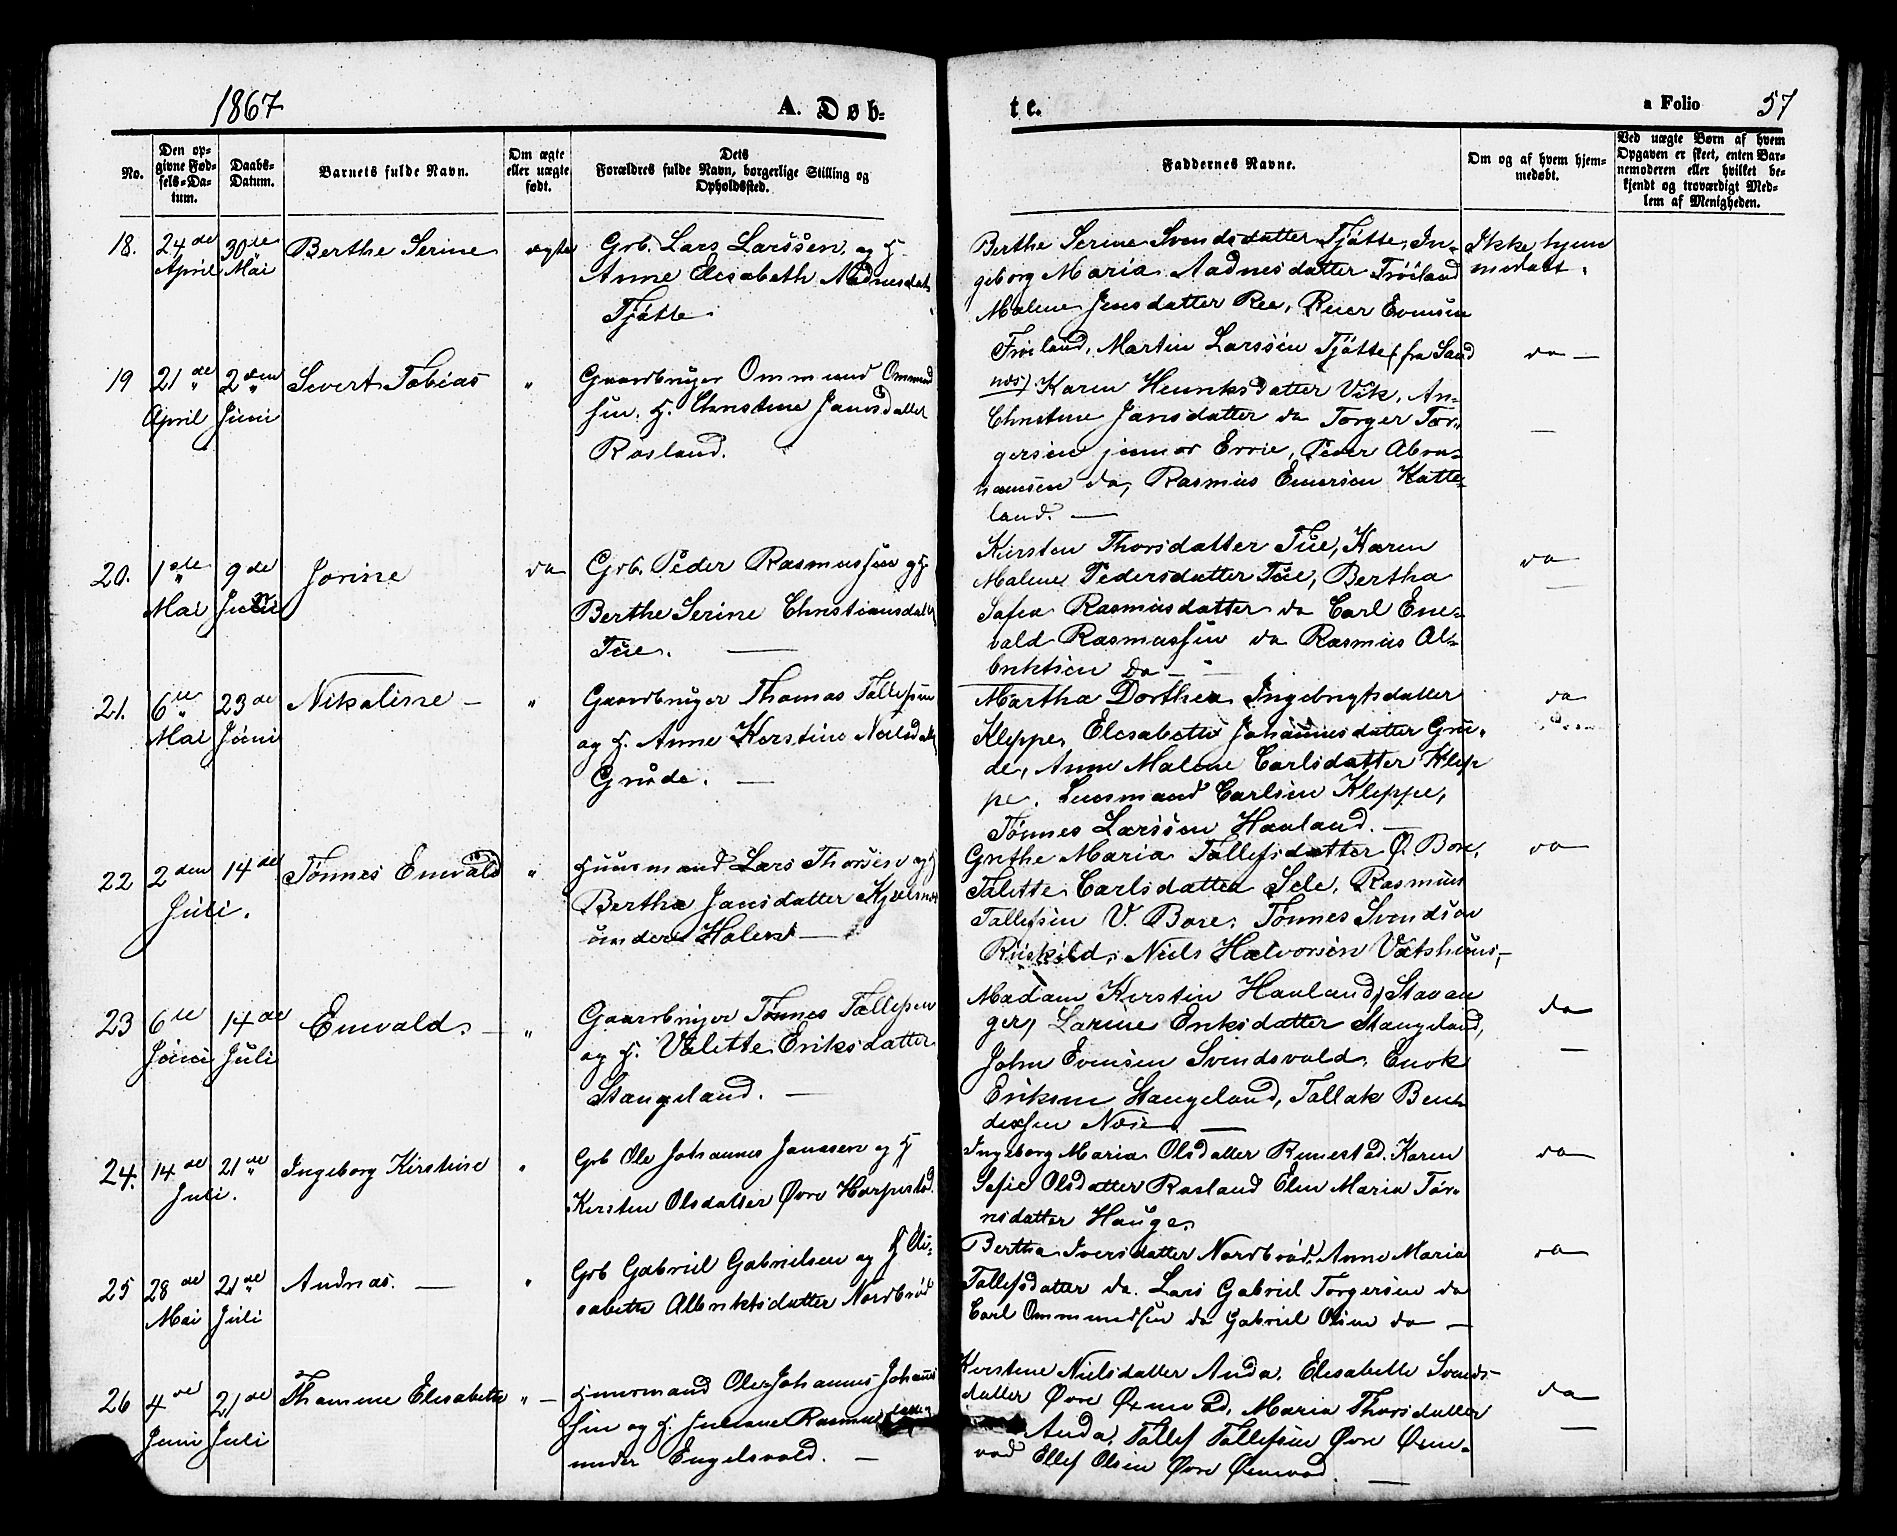 1867
A. Døb-
te.
a Folio 57
No.
Den op-
givne Fød-
sels-Da-
tum.
Daabs-
Datum.
Barnets fulde Navn.
Om ægte
eller uægte
født.
Dets
Forældres fulde Navn, borgerlige Stilling og
Opholdssted.
Faddernes Navne.
Om og af hvem hjem-
medøbt.
Ved uægte Børn af hvem
Opgaven er skeet, enten Bar-
nemoderen eller hvilket be-
kjendt og troværdigt Med-
lem af Menigheden.
18. 24de April 30te Mai Berthe Serine ægte
Grb. Lars Larssen, og H.
Anne Elesabeth Aadnesdat.
Tjøtte
Berthe Serine Svendsdatter Tjøtte, In-
geborg Maria Aadnesdatter Frøiland
Malene Jensdatter Ree, Reier Evensen
Frøiland, Martin Larssen Tjøtte (fra Sand
Ikke hjem
medøbt.
19 21de April 2den Juni Sivert Tobias "
Gaardbruger Ommund Ommund
sen. H. Christine Jansdatter
Rosland.
næs) Karen Henriksdatter Vik, An-
Christine Jansdatter do Torger Tor-
gersen junior Errie, Peder Abra-
hamsen do, Rasmus Einersen Katte-
land. —
do —
20. 1ste Mai 9de Juni Jorine do
Grb. Peder Rasmussen og H
Berthe Serine Christiansdatt
Tue. —
Kirsten Thorsdatter Tue, Karen
Malene Pedersdatter Tue, Bertha
Sofia Rasmusdatter do Carl Ene-
vald Rasmussen do Rasmus Al-
briktsen do —
do
21. 6te Mai 23de Juni Nikoline — "
Gaardbruger Thomas Tollefsen
og H. Anne Kirstine Neilsdatt
Grude. —
Martha Dorthea Ingebrigtsdatter
Kleppe, Elesabeth Johannesdatter Gru-
de, Anne Malene Carlsdatter Klep
pe. Lensmand Carlsen Kleppe,
Tønnes Larssen Hauland. —
do
22 2den Juli. 14de Tønnes Enevald "
Huusmand Lars Thorsen og H
Bertha Jansdatter
under Holen —
Grethe Maria Tollefsdatter Ø. Bore,
Talette Carlsdatter Sele, Rasmus
Tollefsen V. Bore, Tønnes Svendsen
Niels Halvorsen Vatshuus,
do
23 6te Juni 14de Juli Enevald. — "
Gaardbruger Tønnes Tollefsen
og H. Valette Eriksdatter
Stangeland. —
Madam Kirstin Hauland, Stavan
ger, Larine Eriksdatter Stangeland,
John Evensen Svendsvold, Enok
Eriksen Stangeland, Tallak Bent
—
do
24. 14de Juli. 21de Ingeborg Kirstine "
Grb Ole Johannes Janssen og H
Kirsten Olsdatter Øvre Harpestad.
Ingeborg Maria Olsdatter Runestad. Karen
Sofie Olsdatter Rosland Elen Maria Tør-
resdatter Hauge.
do
25 28de Mai 21de Juli Andreas. — "
Grb Gabriel Gabrielsen og H Eli-
sabeth Albriktsdatter Nordbrød
Bertha Iversdatter Nordbrød. Anne Maria
Tollefsdatter do. Lars Gabriel Torgersen do
Carl Ommundsen do Gabriel Olsen do —
do
26 4de Juni 21de Juli Thomine Elisabeth " —
Huusmand Ole Johannes Johans
sen og H. Juliane Rasmusdatter
under Engelsvold. —
Kirstine Nielsdatter Anda. Elisabeth Svends-
datter Øvre Øxnevad, Maria Thorsdatter
Anda, Tollef Tollefsen Øvre Øxne-
vad Ellef Olsen Øvre Øxnevad. —
do